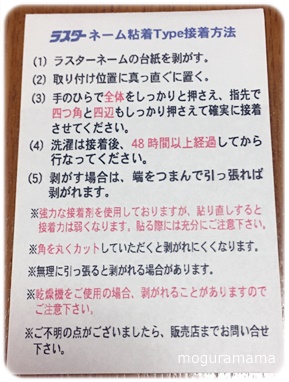 ラスター ネーム粘着Type接着方法
(1) ラスターネームの台紙を剥がす。
(2) 取り付け位置に真っ直ぐに置く。
(3) 手のひらで全体をしっかりと押さえ、指先で
四つ角と四辺もしっかり押さえて確実に接着
させてください。
(4) 洗濯は接着後、48時間以上経過してから
行なってください。
(5) 剥がす場合は、端をつまんで引っ張れば
剥がれます。
※強力な接着剤を使用しておりますが、貼り直しすると
接着力は弱くなります。貼る際には充分にご注意下さい。
※角を丸くカットしていただくと剥がれにくくなります。
※無理に引っ張ると剥がれる場合があります。
※乾燥機をご使用の場合、剥がれることがありますので
ご注意下さい。
※ご不明の点がございましたら、販売店までお問い合せ
下さい。
moguramama